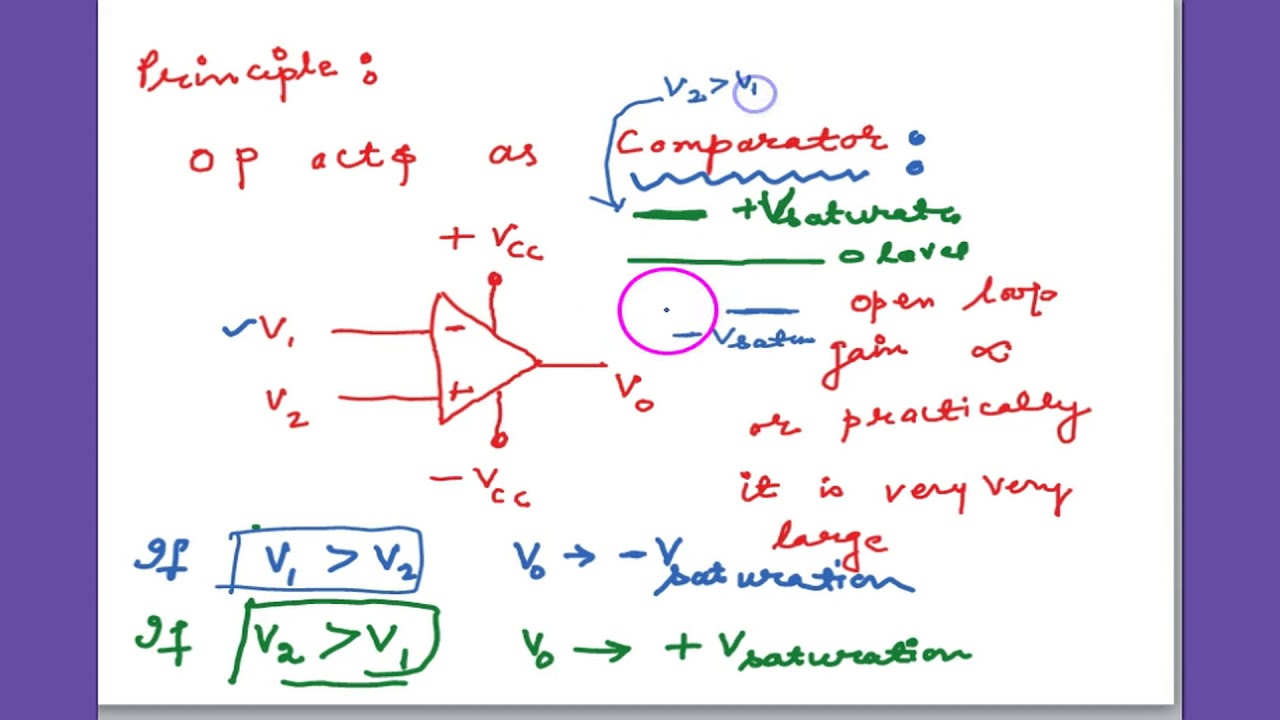 Principle :
V2 > V1
op acts as Comparator :
+Vsaturatn
0 level
+ VCC
- Vsatun
open loop
gain ∝
or practically
it is very very
large
V1
-
V2
+
Vo
- VCC
If V1 > V2 Vo → - Vsaturation
If V2 > V1 Vo → + Vsaturation